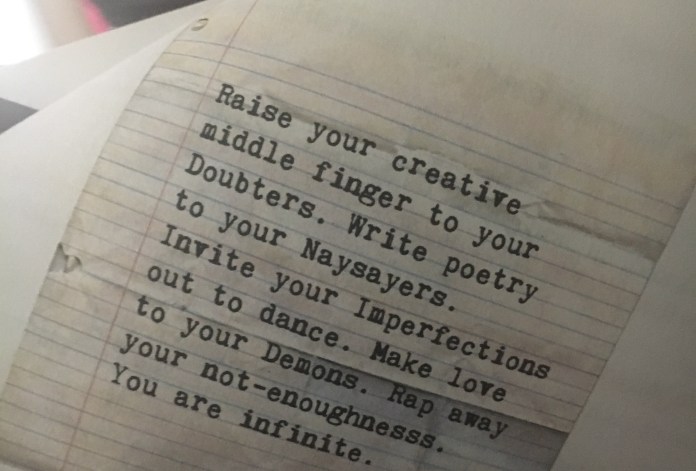 Raise your creative
middle finger to your
Doubters. Write poetry
to your Naysayers.
Invite your Imperfections
out to dance. Make love
to your Demons. Rap away
your not-enoughnesss.
You are infinite.